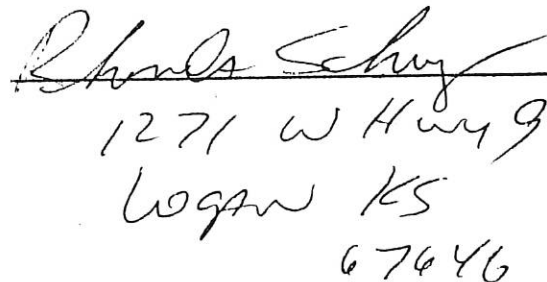 Rhonda
1271 W Hwy 9
Logan KS
67646